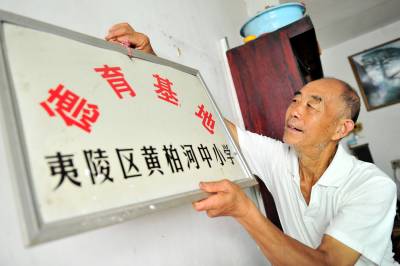 德育基地
夷陵区黄柏河中小学